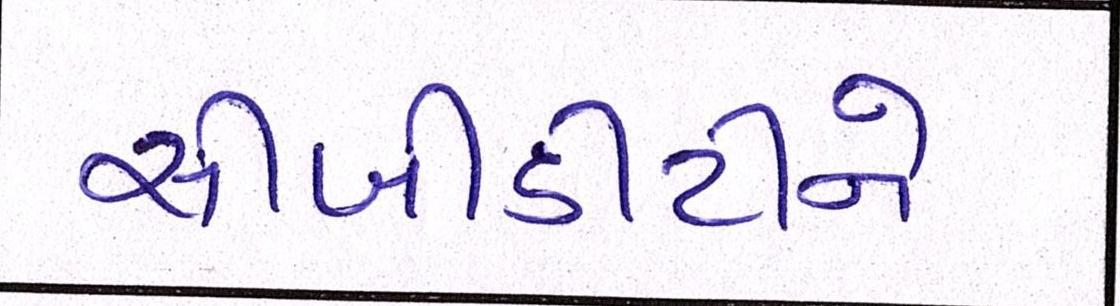 સીબીડીટીને